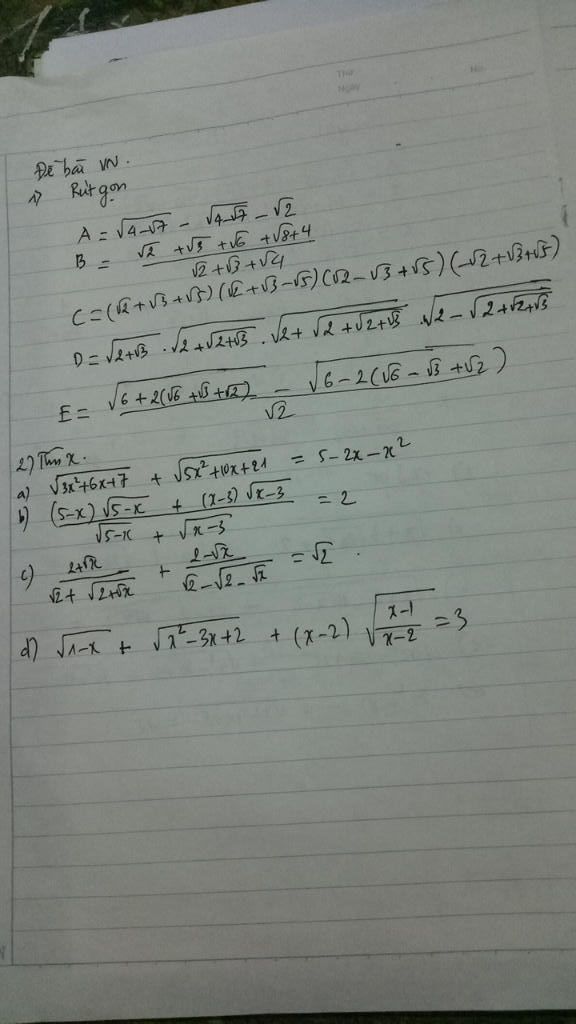 Thứ
Ngày
No.
Đề bài VN.
1) Rút gọn
A = √(4-√7) - √(4-√7) - √2
B = (√2 + √3 + √6 + √8 + 4)/(√2 + √3 + √4)
C = (√2 + √3 + √5)(√2 + √3 - √5)(√2 - √3 + √5)(-√2 + √3 + √5)
D = √(2+√3) . √(2+√(2+√3)) . √(2+√(2+√(2+√3))) . √(2-√(2+√(2+√3)))
E = (√(6+2(√6+√3+√2)) - √(6-2(√6-√3+√2)))/√2
2) Tìm x.
a) √(3x²+6x+7) + √(5x²+10x+21) = 5-2x-x²
b) ((5-x)√(5-x) + (x-3)√(x-3))/(√(5-x) + √(x-3)) = 2
c) (2+√x)/(√2+√(2+√x)) + (2-√x)/(√2-√(2-√x)) = √2 .
d) √(1-x) + √(x²-3x+2) + (x-2)√((x-1)/(x-2)) = 3